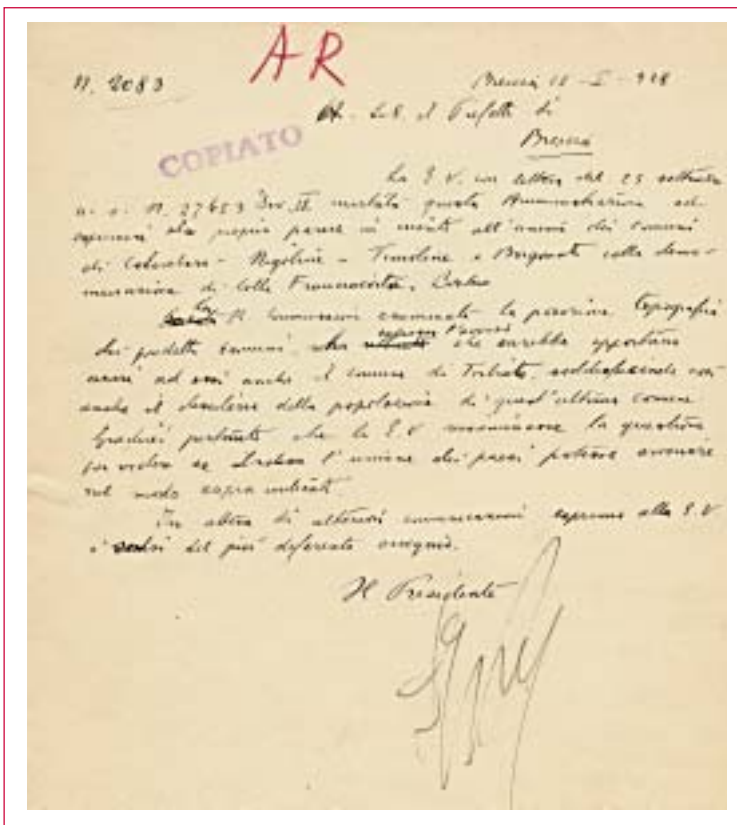 AR
N. 2083
Brescia 10 - I - 928
A S.E. il Prefetto di
Brescia
COPIATO
La E.V. con lettera del 25 settembre
N. 27653 Div. II questa Amministrazione ad
esprimere il proprio parere in merito all'unione dei comuni
di Colombaro - Nigoline - Timoline e Borgonato colla deno-
minazione di Corte Franca
esaminata la posizione topografica
dei predetti comuni, che sarebbe opportuno
unire ad essi anche il comune di
anche il desiderio della popolazione di quest'ultimo comune.
Gradirei pertanto che la E.V. la questione
per vedere se l'unione dei paesi potesse avvenire
nel modo sopra indicato.
In attesa di ulteriori comunicazioni esprimo alla E.V.
i sensi del più deferente ossequio.
Il Presidente